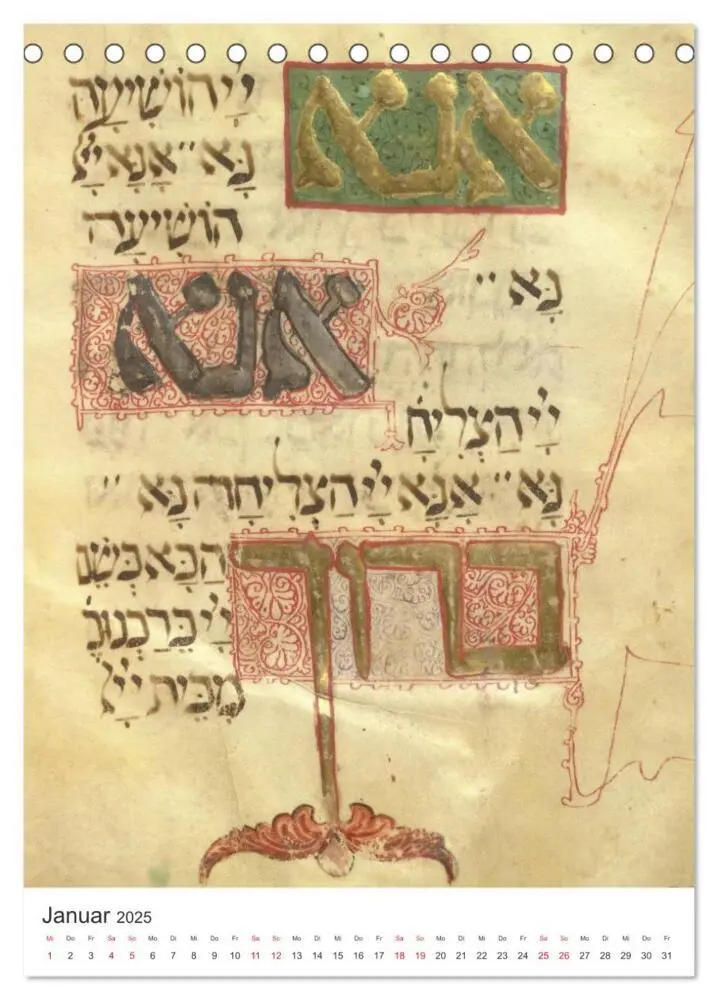 אנא יְיָ הוֹשִׁיעָה
נָּא ״ אָנָּא יְיָ
הוֹשִׁיעָה
נָּא ״
אנא
יְיָ הַצְלִיחָ
נָּא ״ אָנָּא יְיָ הַצְלִיחָה נָּא ״
ברוך הַבָּא בְּשֵׁם
יְיָ בֵּרַכְנוּכֶ
מִבֵּית יְיָ
Januar 2025
Mi Do Fr Sa So Mo Di Mi Do Fr Sa So Mo Di Mi Do Fr Sa So Mo Di Mi Do Fr Sa So Mo Di Mi Do Fr
1 2 3 4 5 6 7 8 9 10 11 12 13 14 15 16 17 18 19 20 21 22 23 24 25 26 27 28 29 30 31